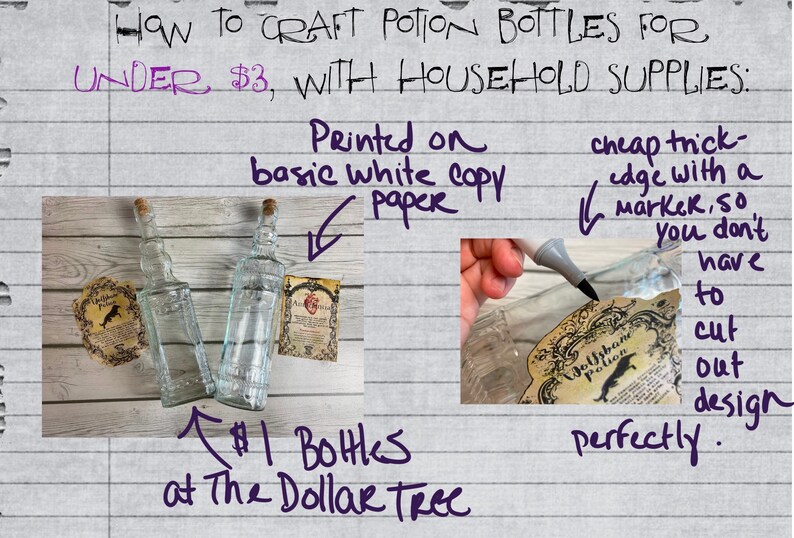 HOW TO CRAFT POTION BOTTLES FOR
UNDER $3, WITH HOUSEHOLD SUPPLIES:
Printed on
basic white copy
paper
cheap trick-
edge with a
marker, so
you don't
have
to
cut
out
design
perfectly.
Wolfsbane
Potion
Wolfsbane
Potion
$1 Bottles
at The Dollar Tree